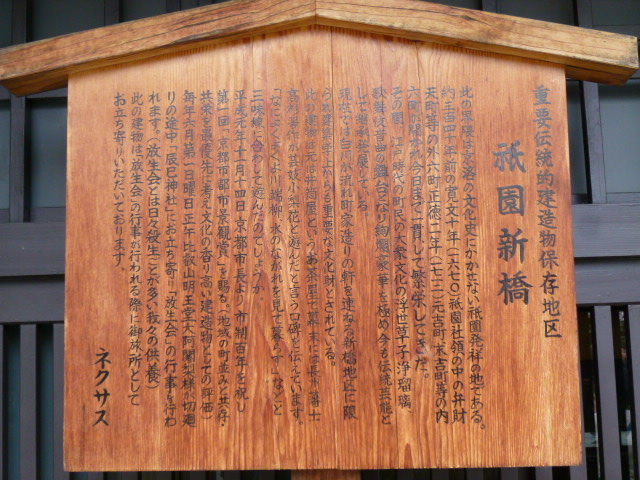 重要伝統的建造物保存地区
祇園新橋
此の界隈は京洛の文化史にかかせない祇園発祥の地である。
約三百四十年前の寛文十年(一六七〇)祇園社領の中の弁財
天町等の外六町正徳二年(一七一二)元吉町、末吉町等の内
六町が開かれ今日まで一貫して繁栄してきた。
その間、江戸時代の町民の大衆文化の浮世草子、浄瑠璃、
歌舞伎音曲の舞台となり絢爛豪華を極め今も伝統芸能と
して継承発展している。
現在では白川の流れ町家造りの軒を連ねる新橋地区に限
られ建築学上からも重要な文化財とされている。
此の建物は元津田楼というお茶屋で幕末には長州藩士
高杉晋作が芸妓小梨花と遊んだと言う口碑を伝えています。
「なにをくよくよ川端柳、水のながれを見て暮らす」などと
三味線に合わして遊んだのでしょうか。
平成元年十一月十四日京都市長より市制百年を祝し
第一回「京都市都市景観賞」を賜る。(地域の町並みとの共存・
共栄を最優先に考え文化の香り高い建造物としての評価)
毎年六月第一日曜日正午比叡山明王堂大阿闍梨様が切廻
りの途中「辰巳神社」にお立ち寄り「放生会」の行事が行わ
れます。(放生会とは日々殺生ことが多い我々の供養)
此の建物は「放生会」の行事が行われる際に御旅所として
お立ち寄りいただいております。
ネクサス